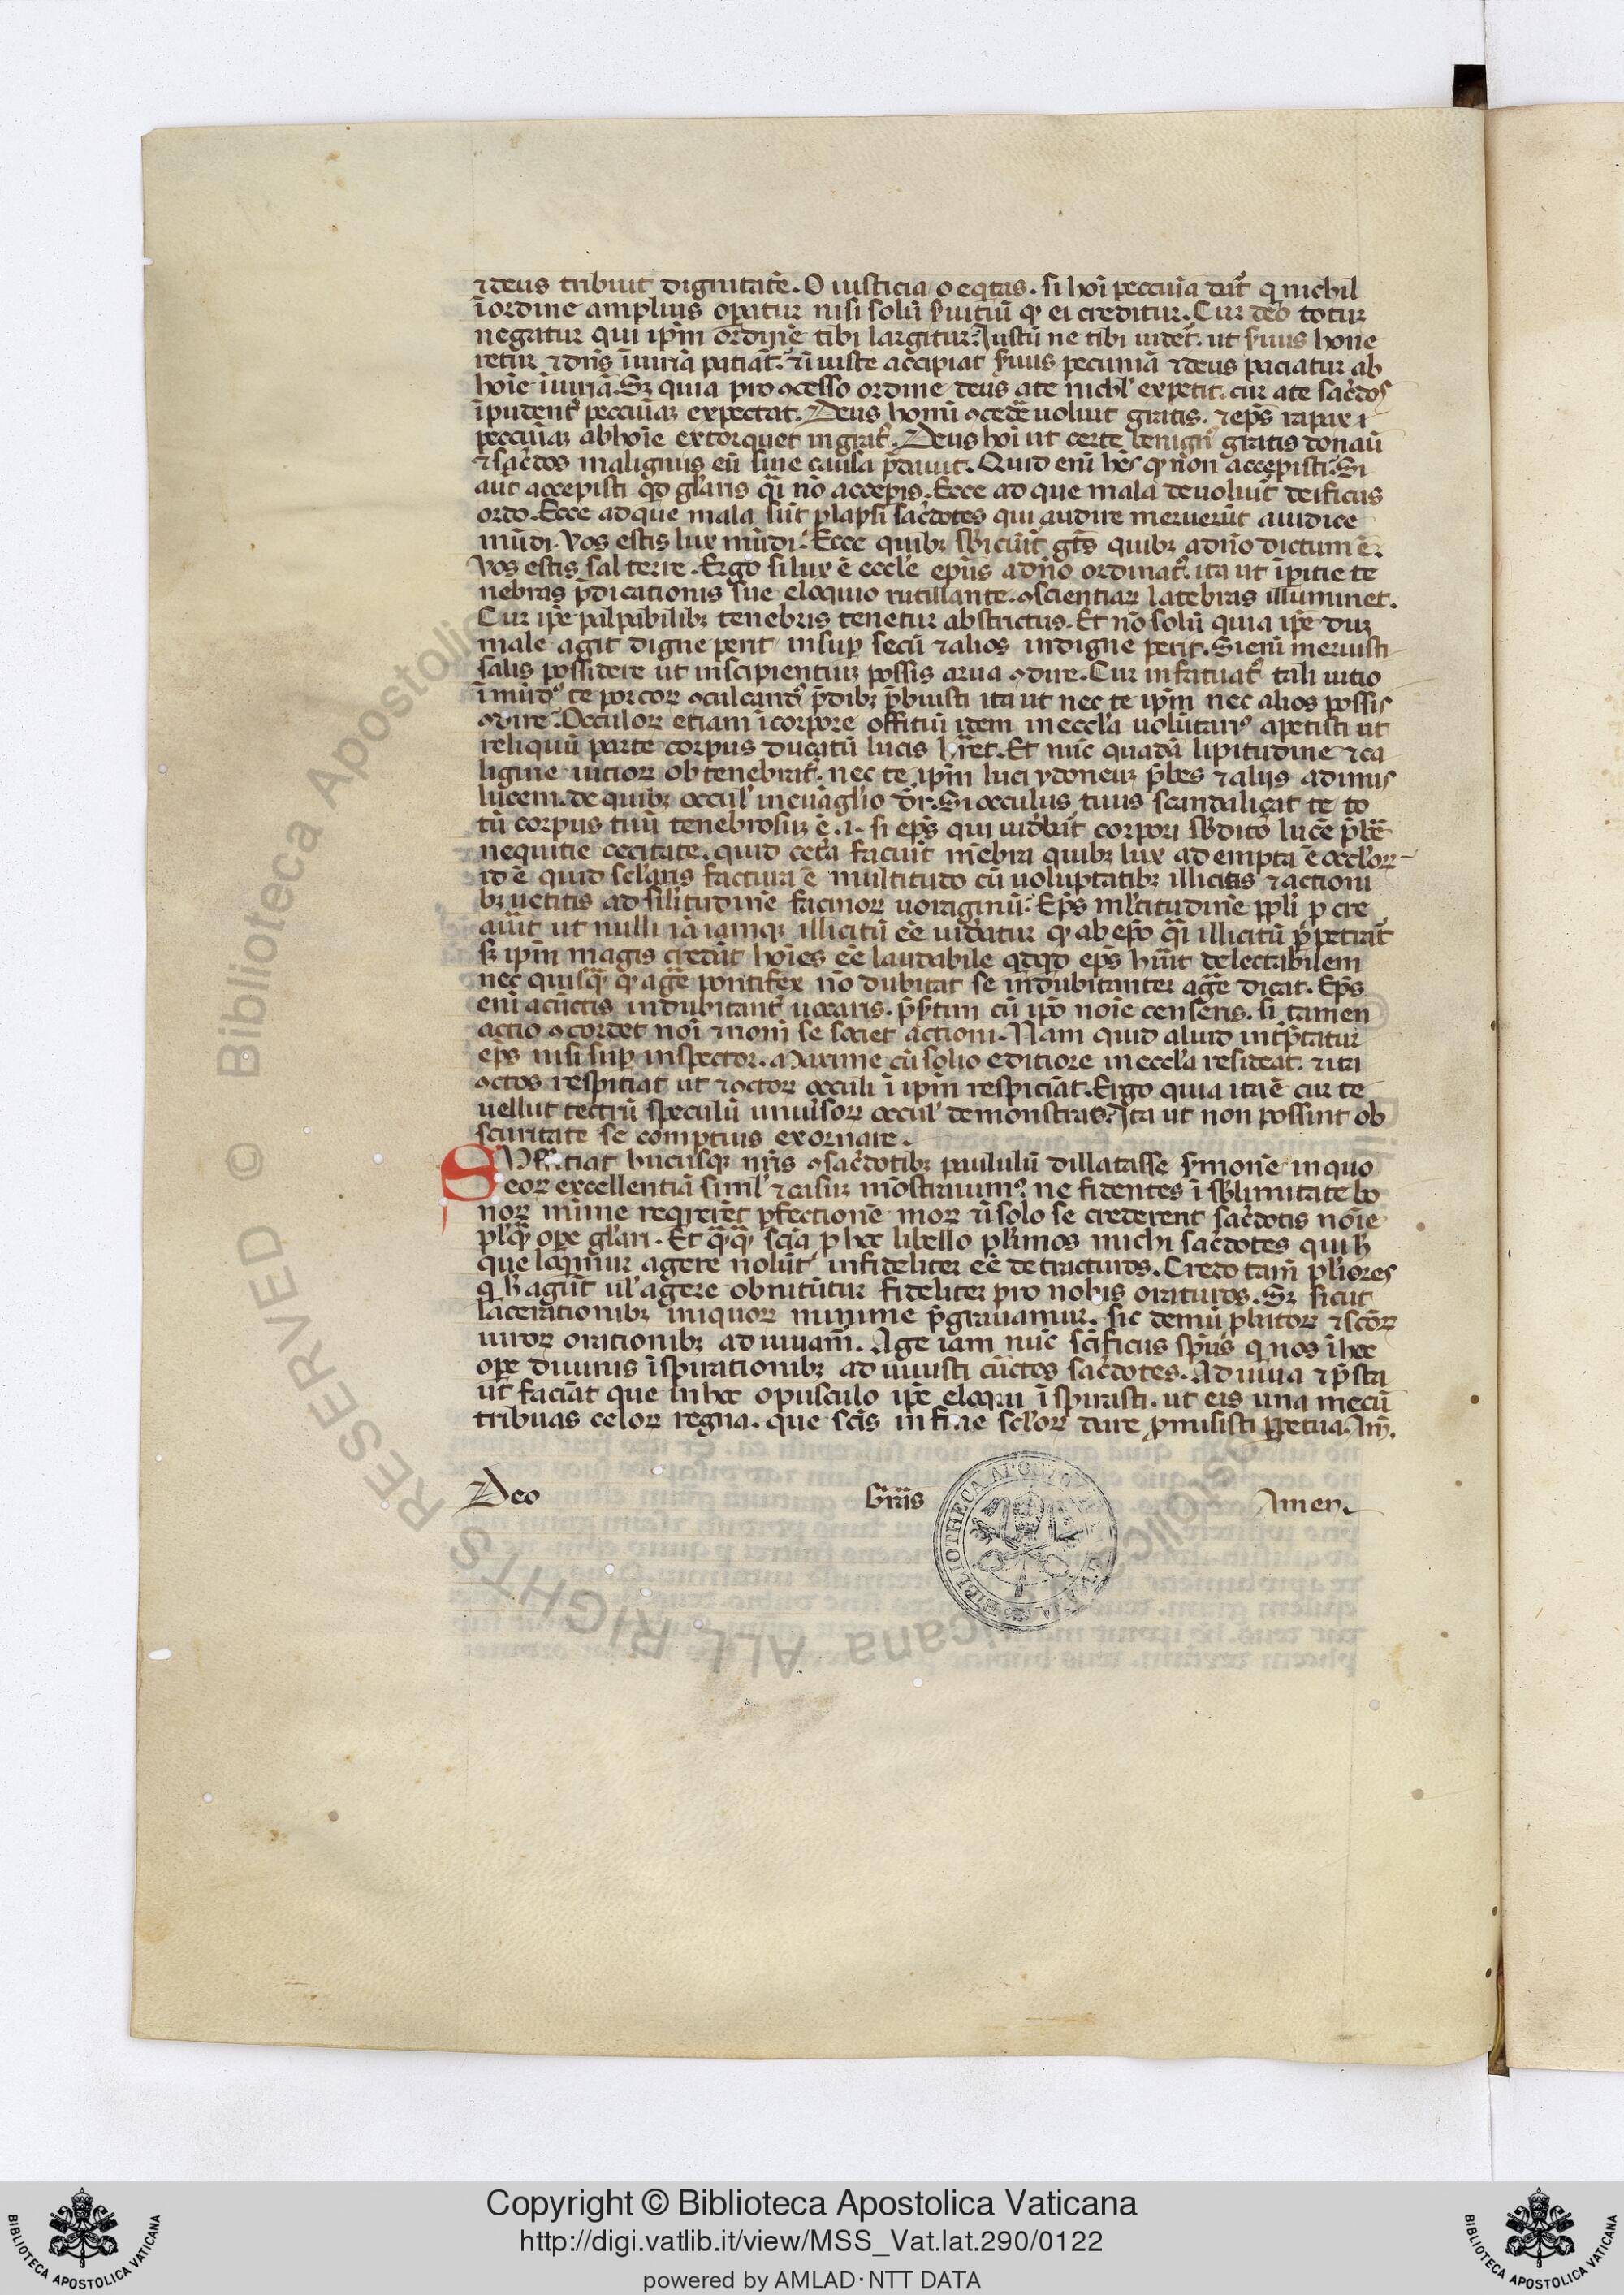 ⁊ deus tribuit dignitatē. O iusticia o eq̄tas. si hoı̄ peccuīa dat̄ q nichil
ı̄ ordine amplius opatur nisi solū ẜuitiū qͥ ei creditur. Cur deo totur
negatur qui ip̄m ordinē tibi largitur. Justū ne tibi uidet̄. ut ẜuus hone
retur ⁊ dn̄s iniuriā patiat̄. ⁊ iniuste accipiat ẜuus pecuniā ⁊ deus paciatur ab
hoı̄e iniuriā. Sꝫ quia pro ꝯcesso ordine deus a te nichl̄ expetit. cur a te sac̄dos
ı̄pudent̄ peccuiaꝫ expectat. Deus homı̄ ꝯcede᷑ uoluit gratis. ⁊ ep̄s rapax ı
peccūiaꝫ ab hoı̄e extorquet ingrat̄. Deus hoı̄ ut certe benign᷒ gratis donaū
⁊ sac̄dos malignus eū sine causa p̄dauit. Quid enı̄ hēs qͥ non accepisti. Si
aut accepisti qͥd gl̄aris qͣı̄ nō accepis. Ecce ad que mala deuoluit̄ deificus
ordo. Ecce ad que mala sūt p̄lapsi sac̄dotes qui audire meruerūt a iudice
mūdi. Vos estis lux mūdi. Ecce quibꝫ sb̄iciūt̄ gt̄s quibꝫ a dn̄o dictum ē.
Vos estis sal terre. Ergo si lux ē eccl̄e epūs a dn̄o ordinat᷒. ita ut ı̄pitie te
nebras p̄dicationis sue eloquio rutillante. ꝯscientiaꝝ latebras illuminet.
Cur ip̄e palpabilibꝫ tenebris tenetur abstrictus. Et nō solū quia ip̄e duꝫ
male agit digne perit insup secū ⁊ alios indigne perit. Si enı̄ meruisti
salis possidere ut inscipientiuꝫ possis arua ꝯdire. Cur infatuat᷒ tali uitio
ı̄mūd᷒ te porcoꝝ ꝯculcand᷒ p̄dibꝫ p̄buisti ita ut nec te ip̄m nec alios possis
ꝯdire. Occuloꝝ etiam ı̄ corpore offitiū idem in eccl̄a uolūtari᷒ apetisti ut
reliquū parte corpus ducatū lucis hr̄et. Et nūc quadā lipitudine ⁊ ca
ligine uitioꝝ obtenebrat᷒. nec te ip̄m luci ydoneuꝫ p̄bes ⁊ alijs adimis
lucem. de quibꝫ occul̄ in euāglio dr̄. Si occulus tuus scandaliçat te to
tū corpus tuū tenebrosuꝫ ē. .ı. si ep̄s qui uideba̅t̄ corpori sb̄dito lucē p̄be᷑
nequitie cecitate. quid cet̄a faciūt mēbra quibꝫ lux adempta ē occl̄oꝝ
id ē quid scl̄aris factura ē multitudo cū uoluptatibꝫ illicitis ⁊ actioni
bꝫ uetitis ad sil̄itudinē facinoꝝ uoraginū. Ep̄s ml̄titudinē ppl̄i p cre
auit ut nulli iā iamqꝫ illicitū ēe uideatur qͥ ab epo qͣı̄ illicitū p̄petrat̄
sꝫ ip̄m magis credūt hoı̄es ēe laudabile qͥdqͥd ep̄s hūit delectabilem
nec quisqͣ qͥ age᷑ pontifex nō dubitat se indubitanter age᷑ dicat. Ep̄s
enı̄ a cūctis indubitant̄ uocaris. p̄ẜtim cū ip̄o noı̄e censeris. si tamen
actio ꝯcordet noı̄ ⁊ nomı̄ se societ actioni. Nam quid aliud int̄p̄tatur
ep̄s nisi sup inspector. Maxime cū solio editiore in eccl̄a resideat. ⁊ ita
ꝯctos respitiat ut ⁊ ꝯctoꝝ occuli ı̄ ip̄m respiciāt. Ergo quia ita ē cur te
uellut tectrū speculū uniuẜoꝝ occul̄ demonstras. Ita ut non possint ob
scuritate se comptius exornare.
SVfficiat hucusqꝫ nr̄is ꝯsac̄dotibꝫ paululū dillatasse ẜmonē in quo
eoꝝ excellentiā siml̄ ⁊ casuꝫ mōstrauim᷒. ne fidentes ı̄ sb̄limitate bo
noꝝ mīime reqͥrerēt pfectionē moꝝ ⁊ ı̄ solo se crederent sac̄dotis noı̄e
pl̄qͣ ope gl̄ari. Et qͣqͣ scīa p hoc libello pl̄imos michi sac̄dotes qui h̄
que loqͥmur agere nolūt infideliter ēe detracturos. Credo tam̄ pl̄iores
q h̄ agūt ul̄ agere obnitūtur fideliter pro nobis oraturos. Sꝫ sicut
lacerationibꝫ iniquoꝝ minime p̄grauamur. sic demū p̄latoꝝ ⁊ scōꝝ
uiroꝝ orationibꝫ adiuuam̄. Age iam nūc scīficus sp̄us q nos ı̄ hoc
ope diuinis ı̄spirationibꝫ adiuuisti cūctos sac̄dotes. Adiuua ⁊ p̄sta
ut faciāt que in hoc opusculo ip̄e eloqui ı̄spirasti. ut eis una mecū
tribuas celoꝝ regna. que scīs in fine scl̄oꝝ dare ꝓmisisti ꝑpetua. Am̄.
Deo gr̄as Amen.
Copyright © Biblioteca Apostolica Vaticana
http://digi.vatlib.it/view/MSS_Vat.lat.290/0122
powered by AMLAD·NTT DATA
BIBLIOTECA APOSTOLICA VATICANA
BIBLIOTECA APOSTOLICA VATICANA